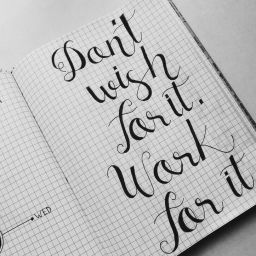 Don't
wish
for it.
Work
for it
WED